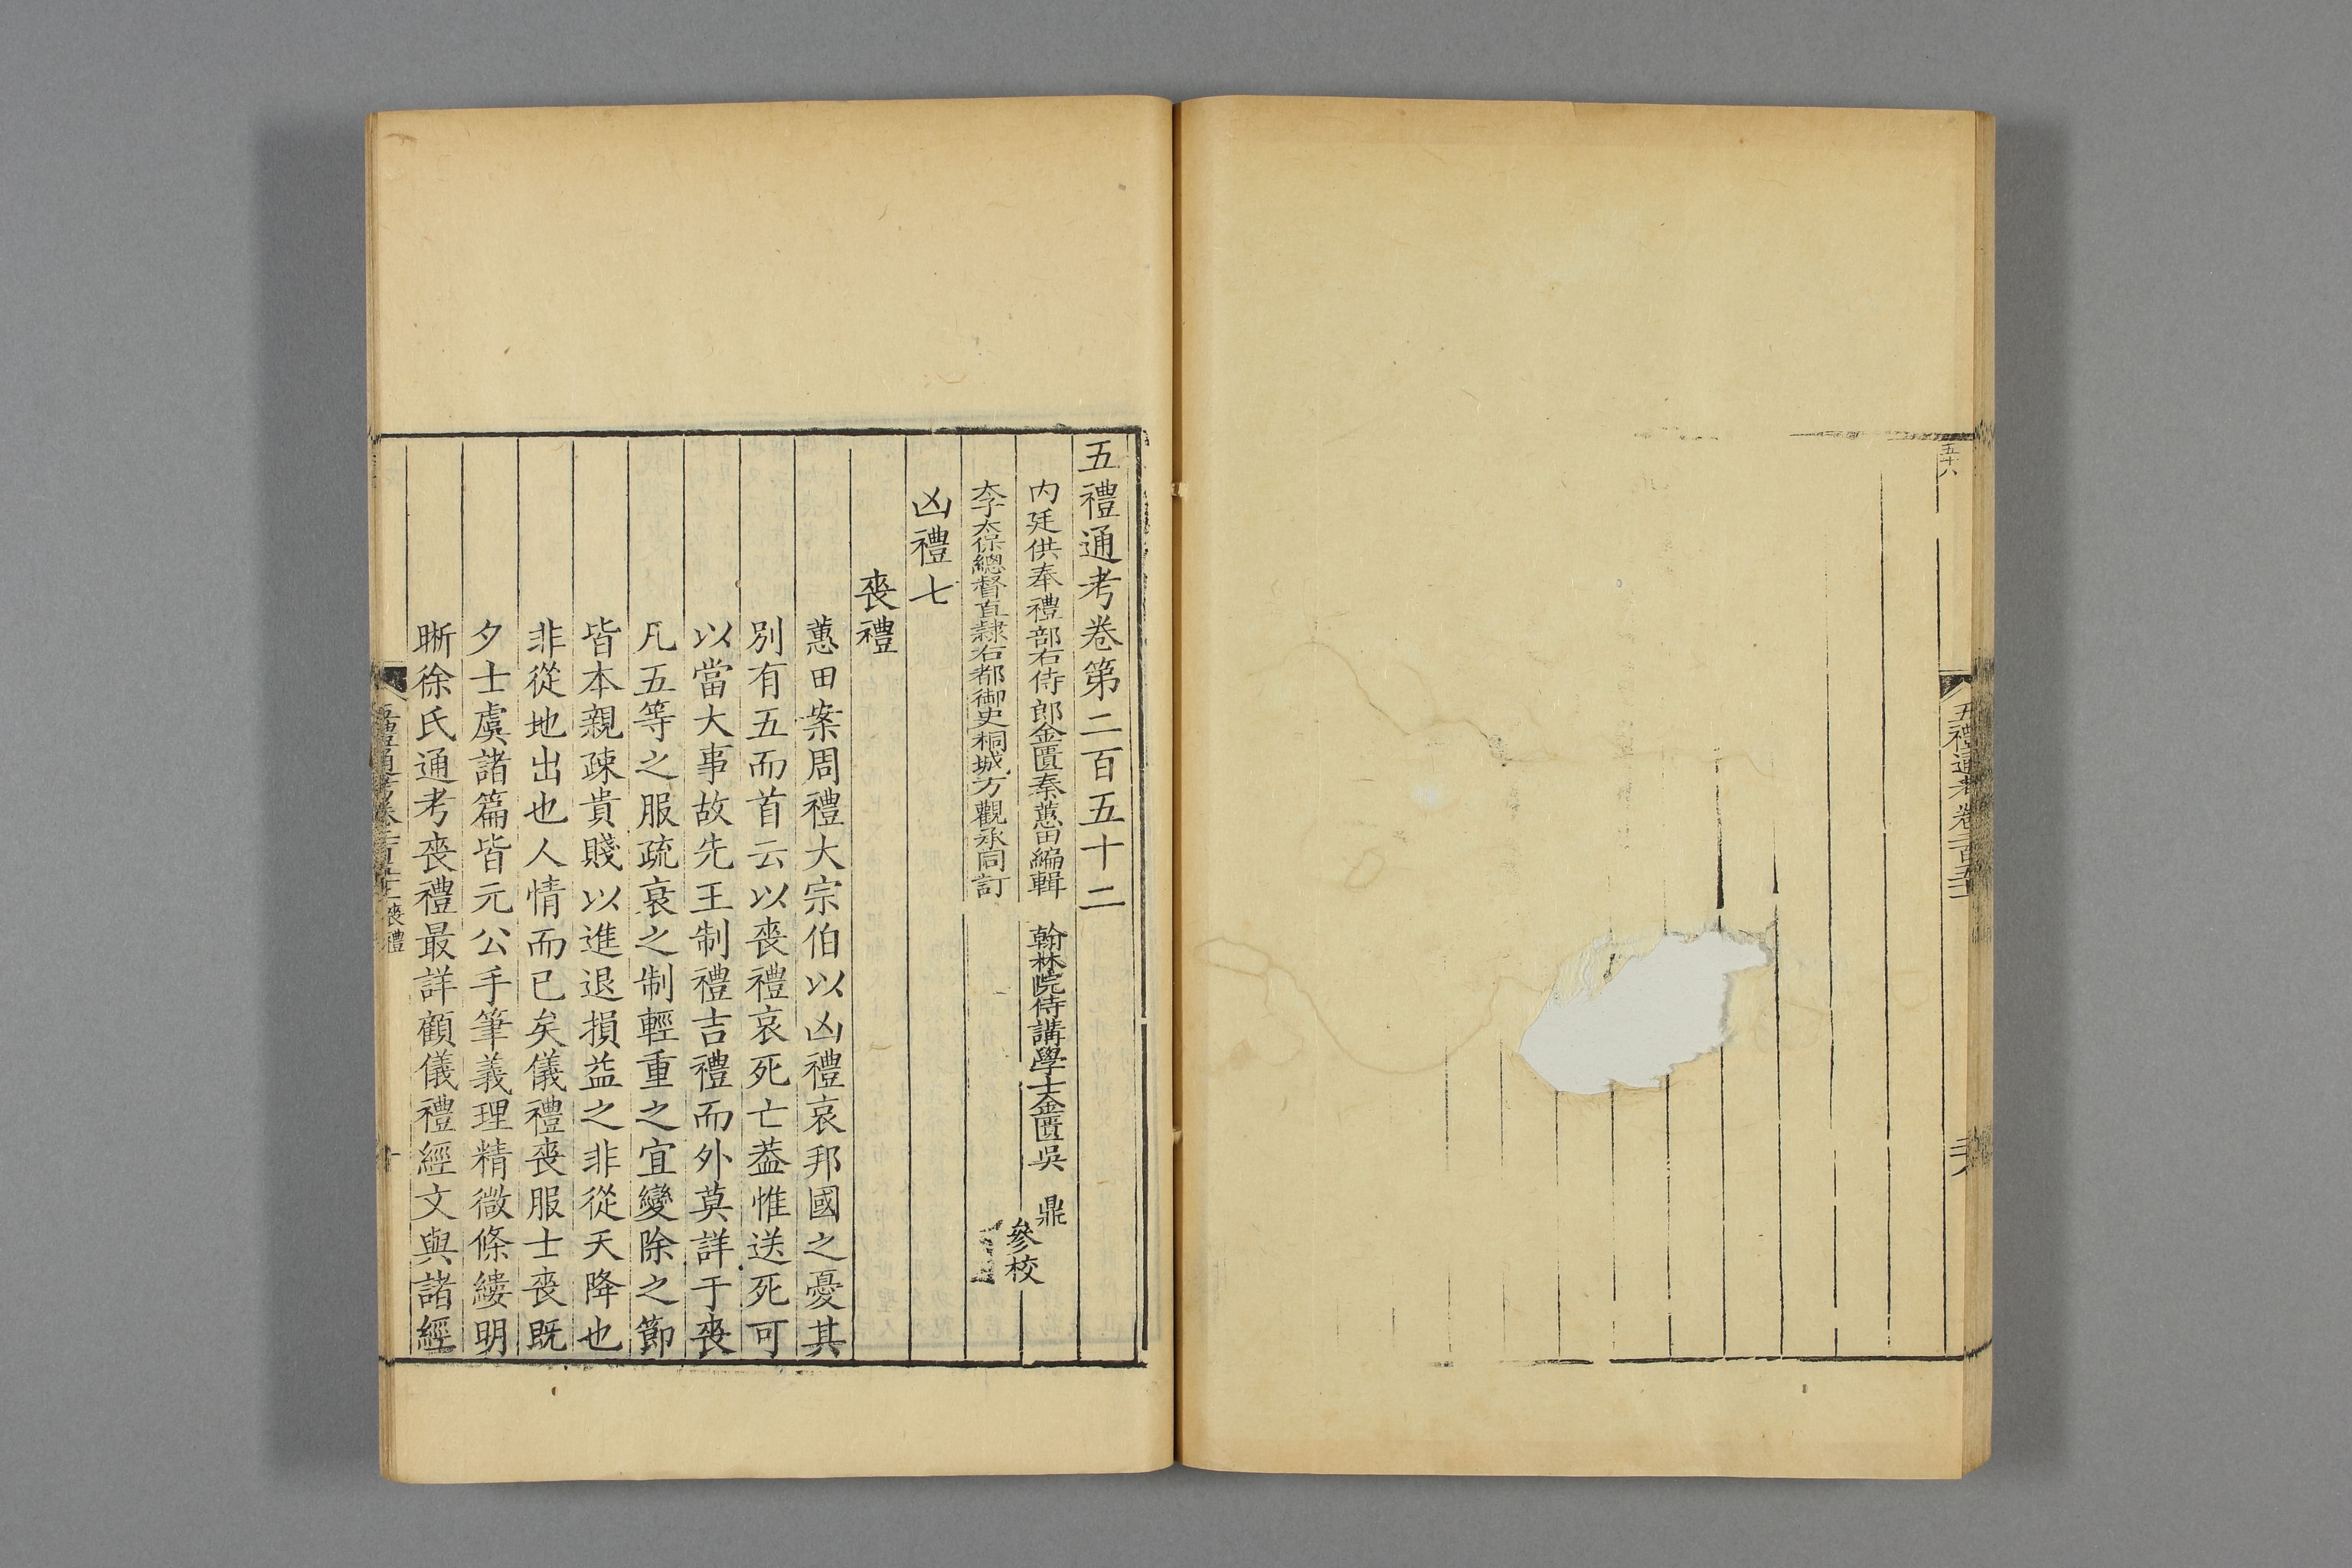 五十八
五禮通考卷二百五十一
五禮通考卷第二百五十二
内廷供奉禮部右侍郎金匱秦蕙田編輯
太子太保總督直隸右都御史桐城方觀承同訂
翰林院侍講學士金匱吳 鼎
參校
凶禮七
喪禮
蕙田案周禮大宗伯以凶禮哀邦國之憂其
別有五而首云以喪禮哀死亡葢惟送死可
以當大事故先王制禮吉禮而外莫詳于喪
凡五等之服疏衰之制輕重之宜變除之節
皆本親疎貴賤以進退損益之非從天降也
非從地出也人情而已矣儀禮喪服士喪既
夕士虞諸篇皆元公手筆義理精微條縷明
晰徐氏通考喪禮最詳顧儀禮經文與諸經
五禮通考卷二百五十二 喪禮